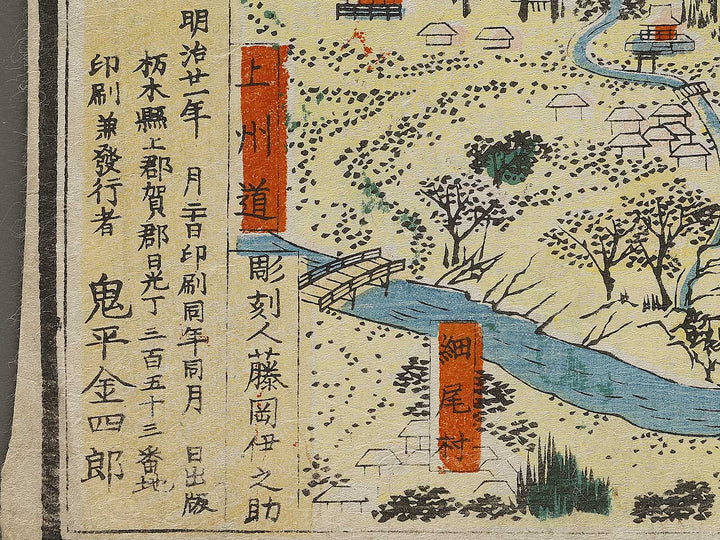 細尾村
上州道
彫刻人藤岡伊之助
明治廿一年 月 日印刷同年同月 日出版
杤木縣上郡賀郡日光丁三百五十三番地
印刷兼發行者 鬼平金四郎